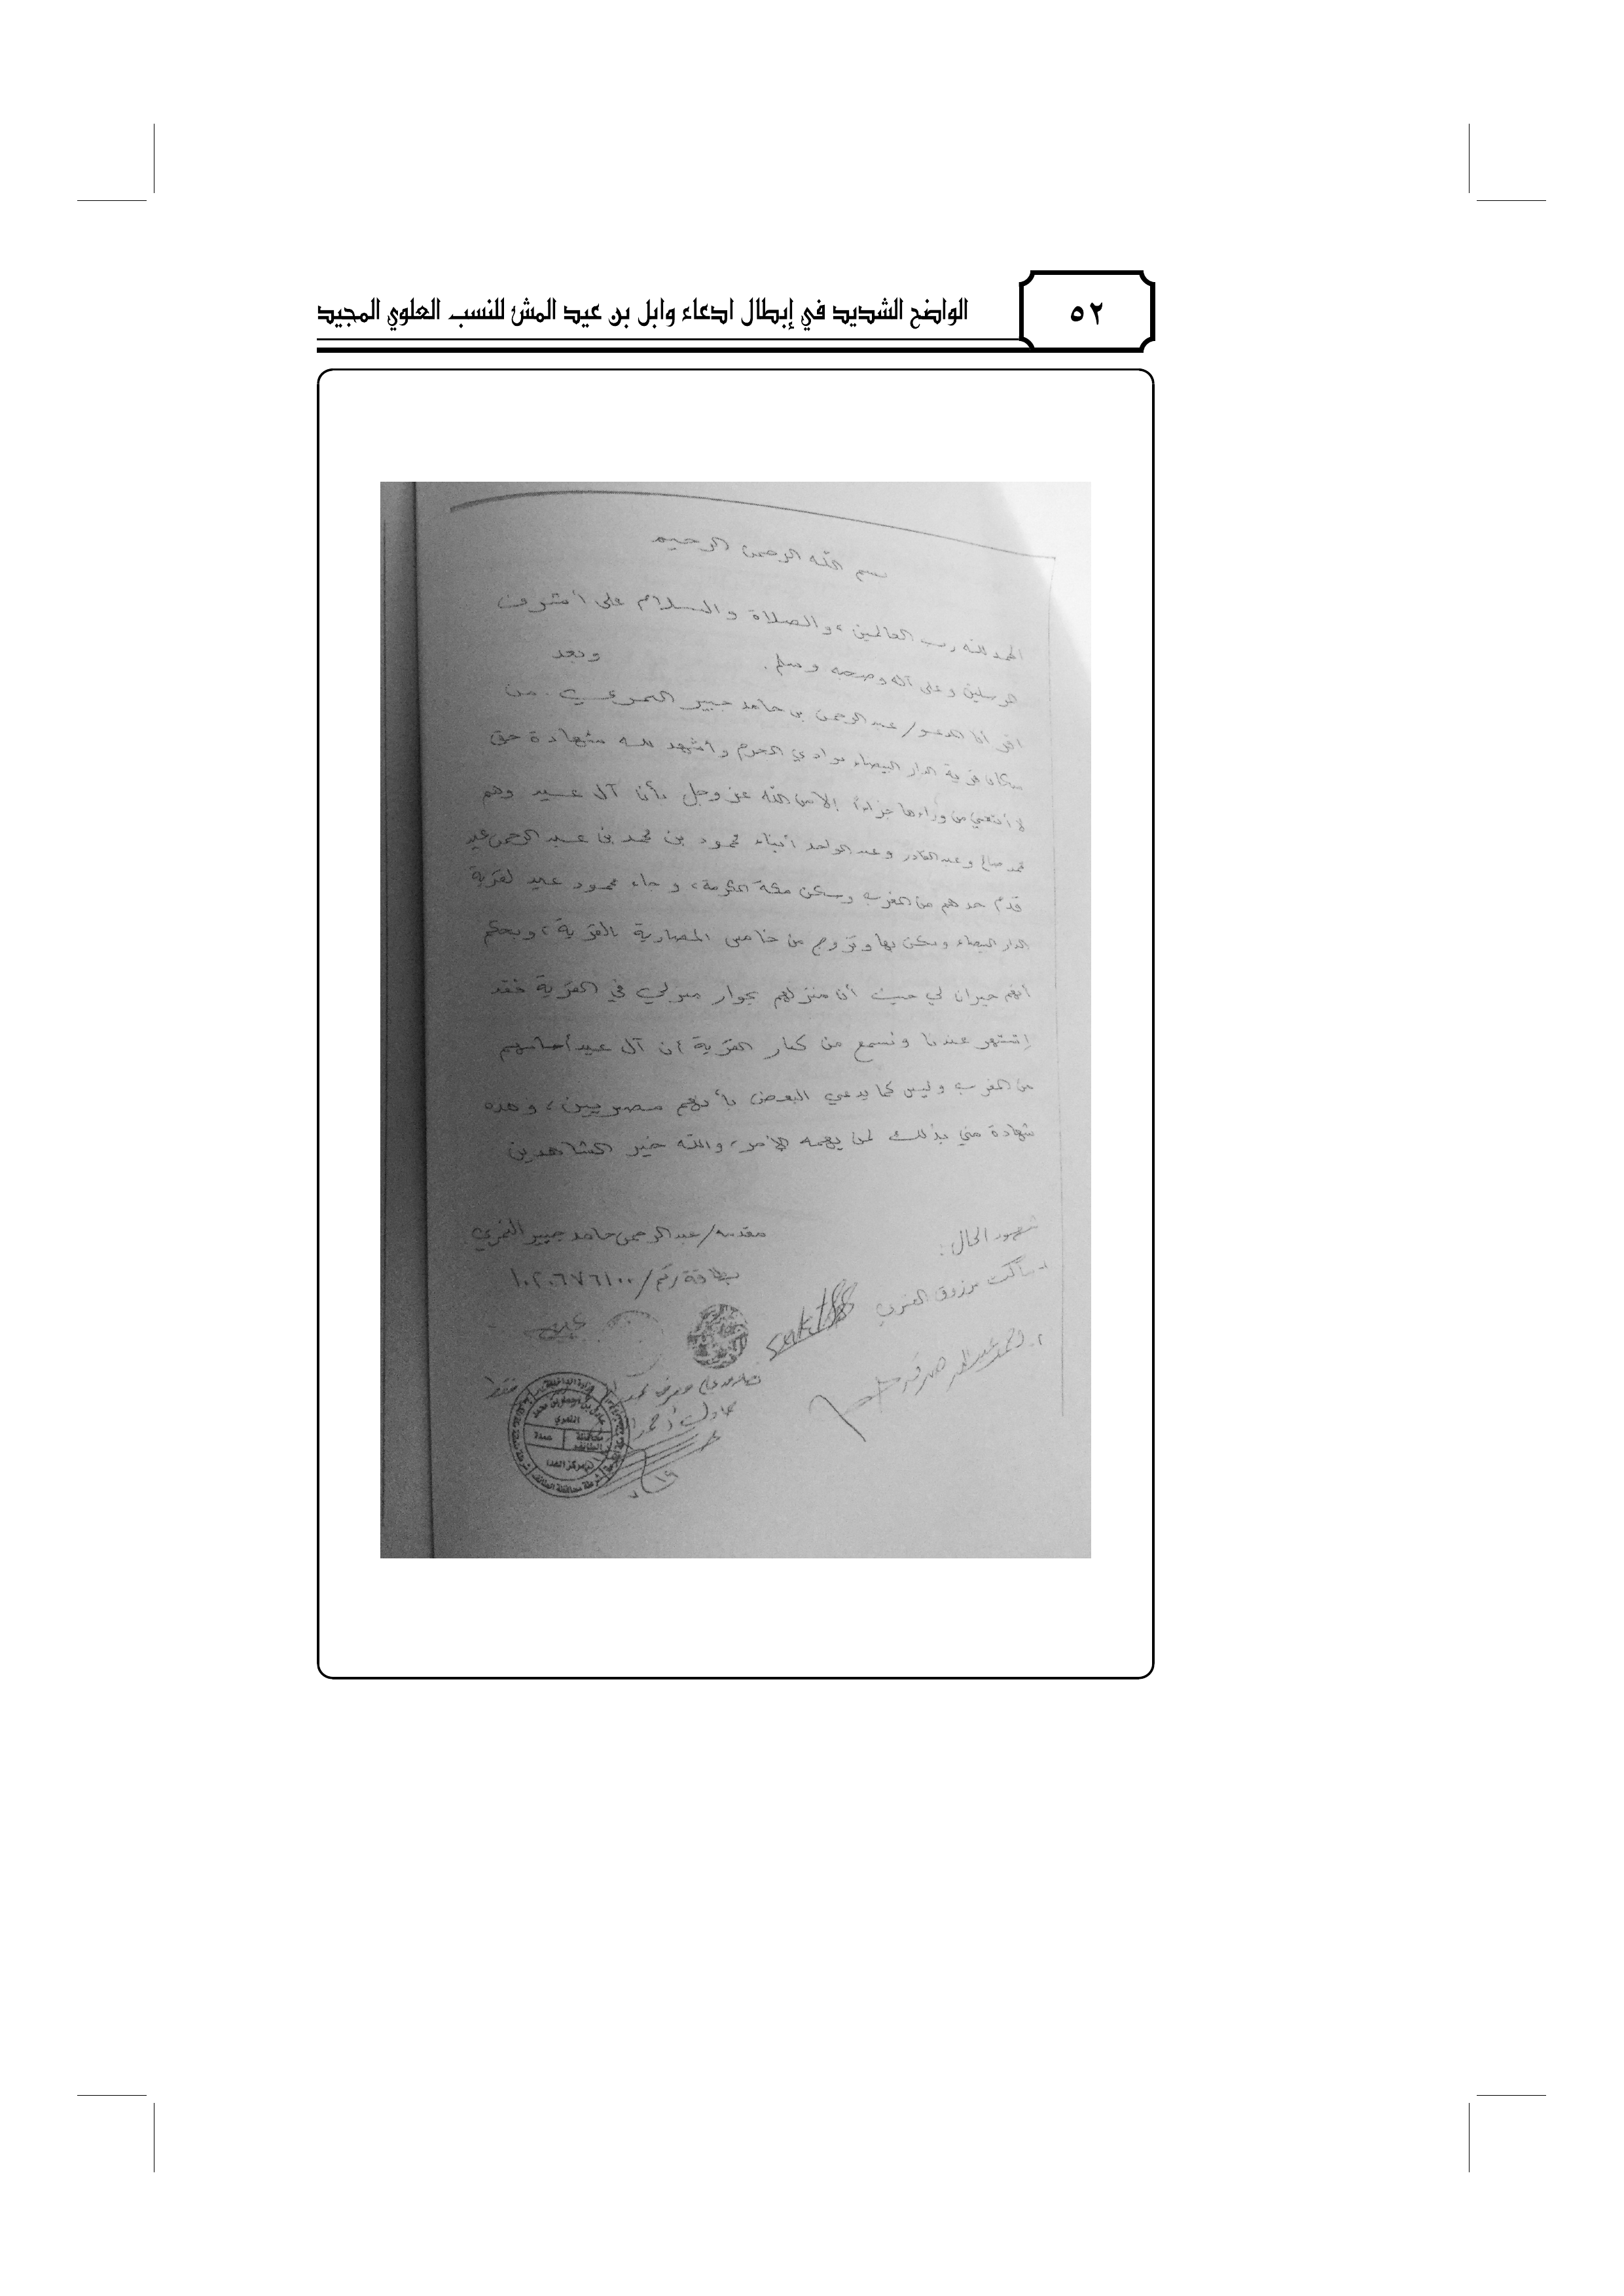 ٥٢
الواضح الشديد في إبطال ادعاء وابل بن عيد المش للنسب العلوي المجيد
بسم الله الرحمن الرحيم
الحمد لله رب العالمين، والصلاة والسلام على أشرف
وعلى آله وصحبه وسلم. وبعد
أنا المدعو/ عبد الرحمن بن حامد جبير من
سكان قرية الدار البيضاء بوادي المحرم وأشهد لله شهادة حق
لا أبتغي من وراءها جزاءاً إلا من الله عز وجل بأن آل عيد وهم
محمد صالح وعبد القادر وعبد الواحد أبناء محمود بن محمد بن عبد الرحمن عيد
قدم جدهم من المغرب وسكن مكة المكرمة، وجاء محمود عيد لقرية
الدار البيضاء وسكن بها وتزوج من بالقرية، وبحكم
أنهم جيران لي حيث أن منزلهم بجوار منزلي في القرية فقد
إشتهر عندنا ونسمع من كبار القرية أن آل عيد أساسهم
من المغرب وليس كما يدعي البعض بأنهم مصريين، وهذه
شهادة مني بذلك لمن يهمه الأمر، والله خير الشاهدين
مقدمه/ عبد الرحمن حامد جبير النمري
بطاقة رقم/
شهود الحال:
مرزوق
فقط
النمري
محافظة الطائف
عمدة
شرطة محافظة الطائف